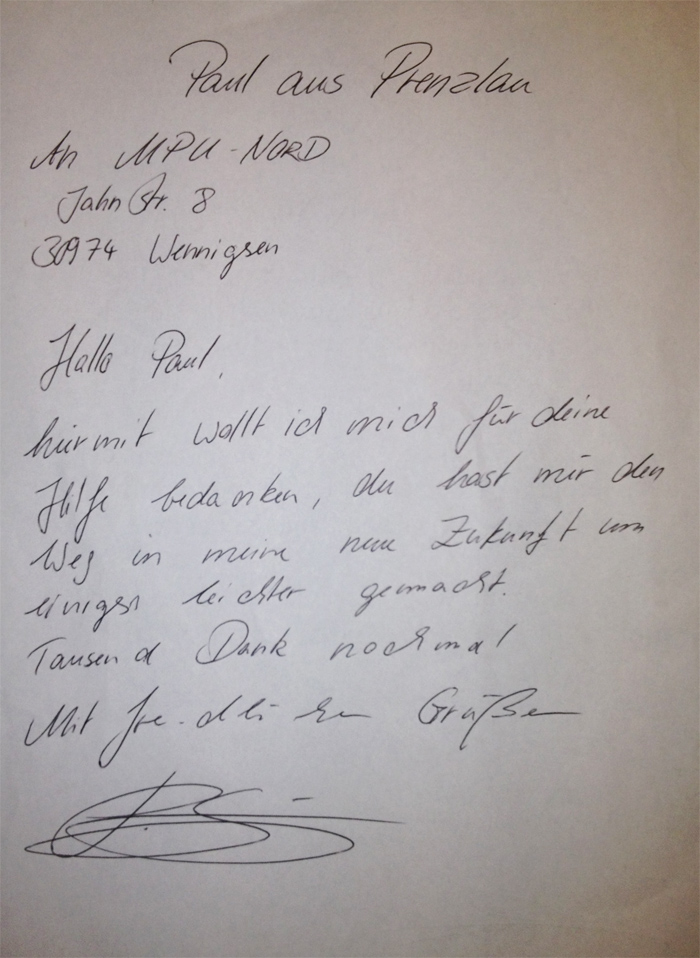 Paul aus Prenzlau
An MPU-NORD
Jahnstr. 8
30974 Wennigsen
Hallo Paul,
hiermit wollt ich mich für deine
Hilfe bedanken, du hast mir den
Weg in meine neue Zukunft um
einiges leichter gemacht.
Tausend Dank nochmal
Mit freundlichen Grüßen